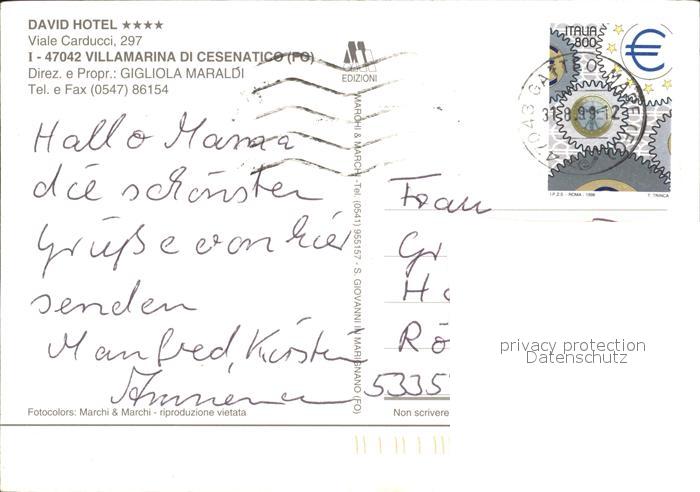 DAVID HOTEL ★★★★
Viale Carducci, 297
I - 47042 VILLAMARINA DI CESENATICO (FO)
Direz. e Propr.: GIGLIOLA MARALDI
Tel. e Fax (0547) 86154
Hallo Mama
die schönsten
Grüße von hier
senden
Manfred, Kirstin
Fotocolors: Marchi & Marchi - riproduzione vietata
EDIZIONI
MARCHI & MARCHI - Tel. (0541) 955157 - S. GIOVANNI IN MARIGNANO (FO)
ITALIA
800
€
47043 GATTEO MARE
31.8.99-12
I.P.Z.S. - ROMA - 1998
T. TRINCA
Frau
Gr
Ha
Rö
5335
Non scrivere
privacy protection
Datenschutz